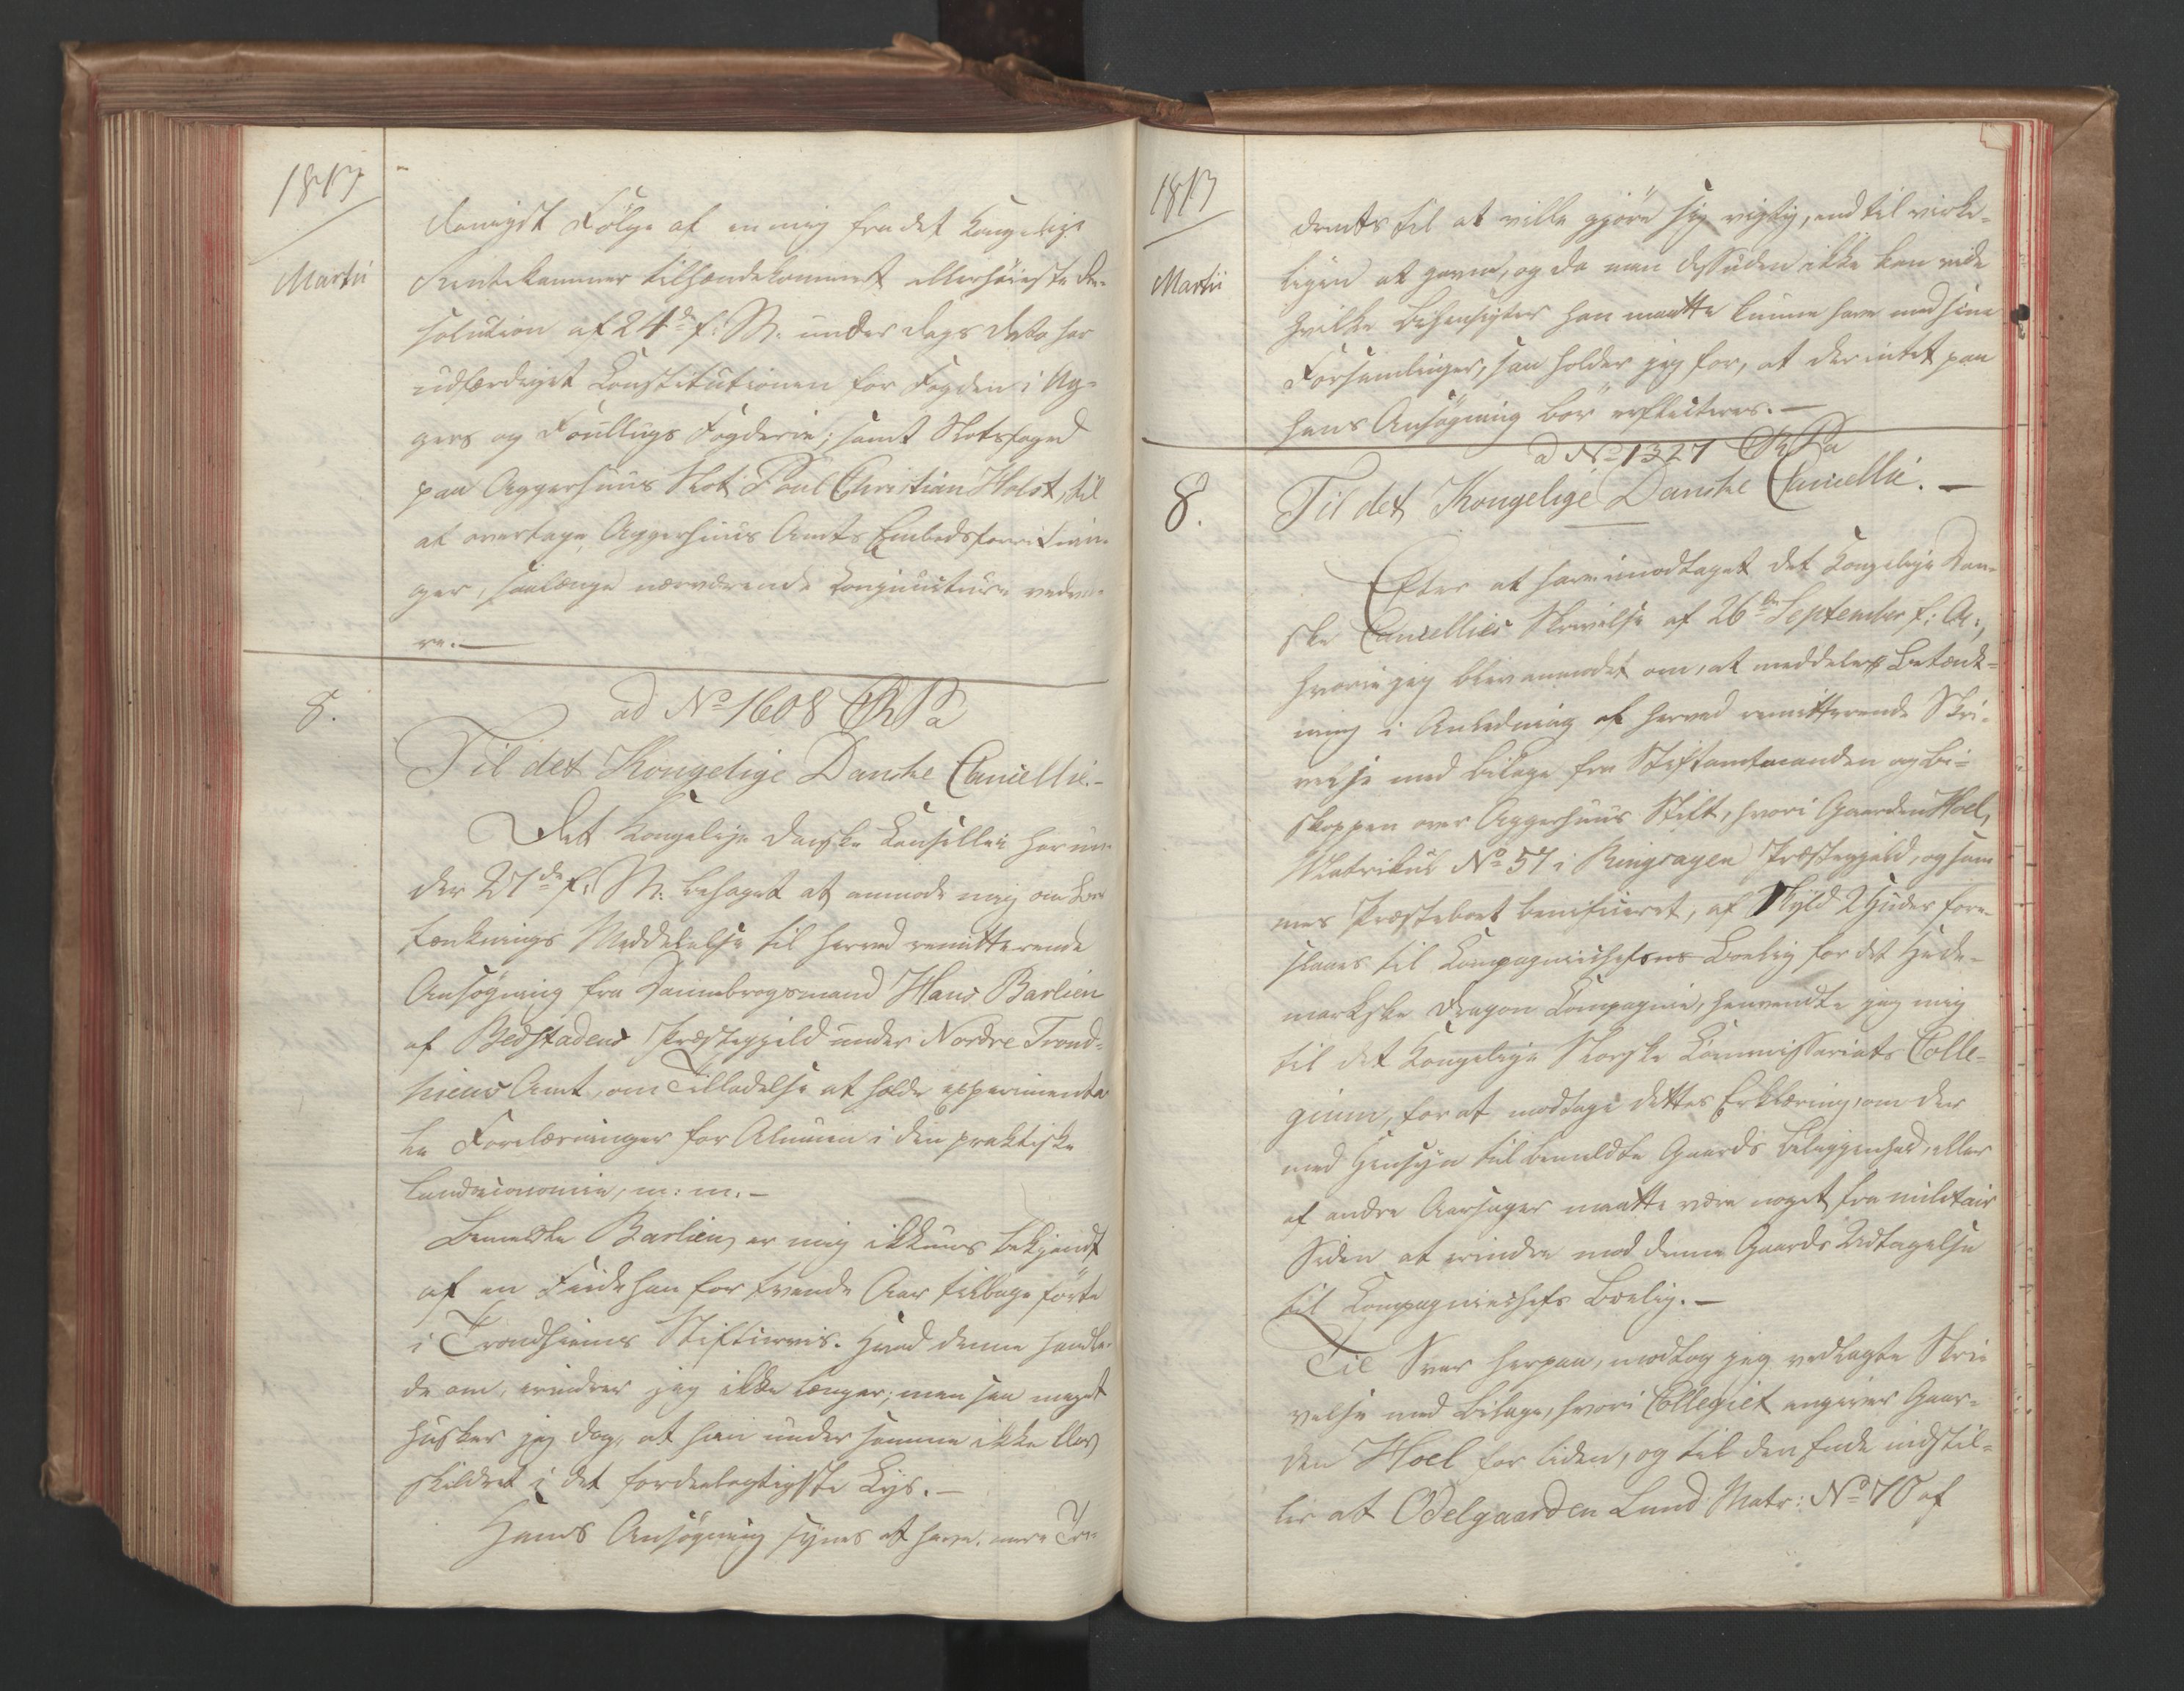 1813
Martii
damigst Følge af en mig fra det Kongelige
Rentekammer tilhændekommet allerhøieste Re-
solution af 24de f: M: under Dags Dato har
udfærdiget Constitutionen for Fogden i Ag-
gers og Foullugs Fogderie; samt Slotsfoged
paa Aggerhuus Slot Poul Christian Holst, til
at overtage Aggerhuus Amts Embedsforretnin-
ger, saalænge nærværende Conjuncturer vedva-
re.—
8.
ad No 1608 
Til det Kongelige Danske Cancellie.-
Det Kongelige Danske Cancellie har un-
der 27de f: M: behaget at anmode mig om Be-
tænknings Meddelelse til herved remitterende
Ansøgning fra Dannebrogsmand Hans Barlien
af Bedstadens Præstegjeld under Nordre Trond-
hiems Amt, om Tilladelse at holde experimenta
le Forelæsninger for Almuen i den praktiske
Landoeconomie, m: m.-
Bemeldte Barlien er mig ikkuns bekjendt
af en Feide han for tvende Aar tilbage førte
i Trondhiems Stiftsavis. Hvad denne handle-
de om, erindrer jeg ikke længer; men saa meget
husker jeg dog, at han under samme ikke blev
skildret i det fordeelagtigste Lys.—
Hans Ansøgning synes at have mere Ten-
1813
Martii
dents til at ville gjøre sig vigtig, end til virke-
ligen at gavne, og da man desuden ikke kan vide
hvilke Bihensigter han maatte kunne have med sine
Forsamlinger, saa holder jeg for, at der intet paa
hans Ansøgning bør reflecteres.—
ad No 1327 
8.
Til det Kongelige Danske Cancellie.—
Efter at have imodtaget det Kongelige Dan-
ske Cancellies Skrivelse af 26de September f: A:,
hvorin jeg blev anmodet om, at meddele Betænk-
ning i Anledning af herved remitterende Skri-
velse med Bilage fra Stiftamtmanden og Bi-
skoppen over Aggerhuus Stift, hvori Gaarden Hoel,
Matrikul No 57 i Ringsagen Præstegjeld, og sam-
mes Præstebord benificeret, af Skyld 2 Huder fore-
slaaes til Compagniechefens Boelig for det Hede-
markske Dragon Compagnie, henvendte jeg mig
til det Kongelige Norske Commissariats Colle-
gium, for at modtage dettes Erklæring, om der
med Hensyn til bemeldte Gaards Beliggenhed, eller
af andre Aarsager maatte være noget fra militair
Siden at erindre mod denne Gaards Udtagelse
til Compagniechefs Boelig.—
Til Svar herpaa, modtog jeg vedlagte Skri-
velse med Bilage, hvori Collegiet angiver Gaar-
den Hoel for liden, og til den Ende indstil-
ler at Odelgaarden Lund Matr: No 70 af